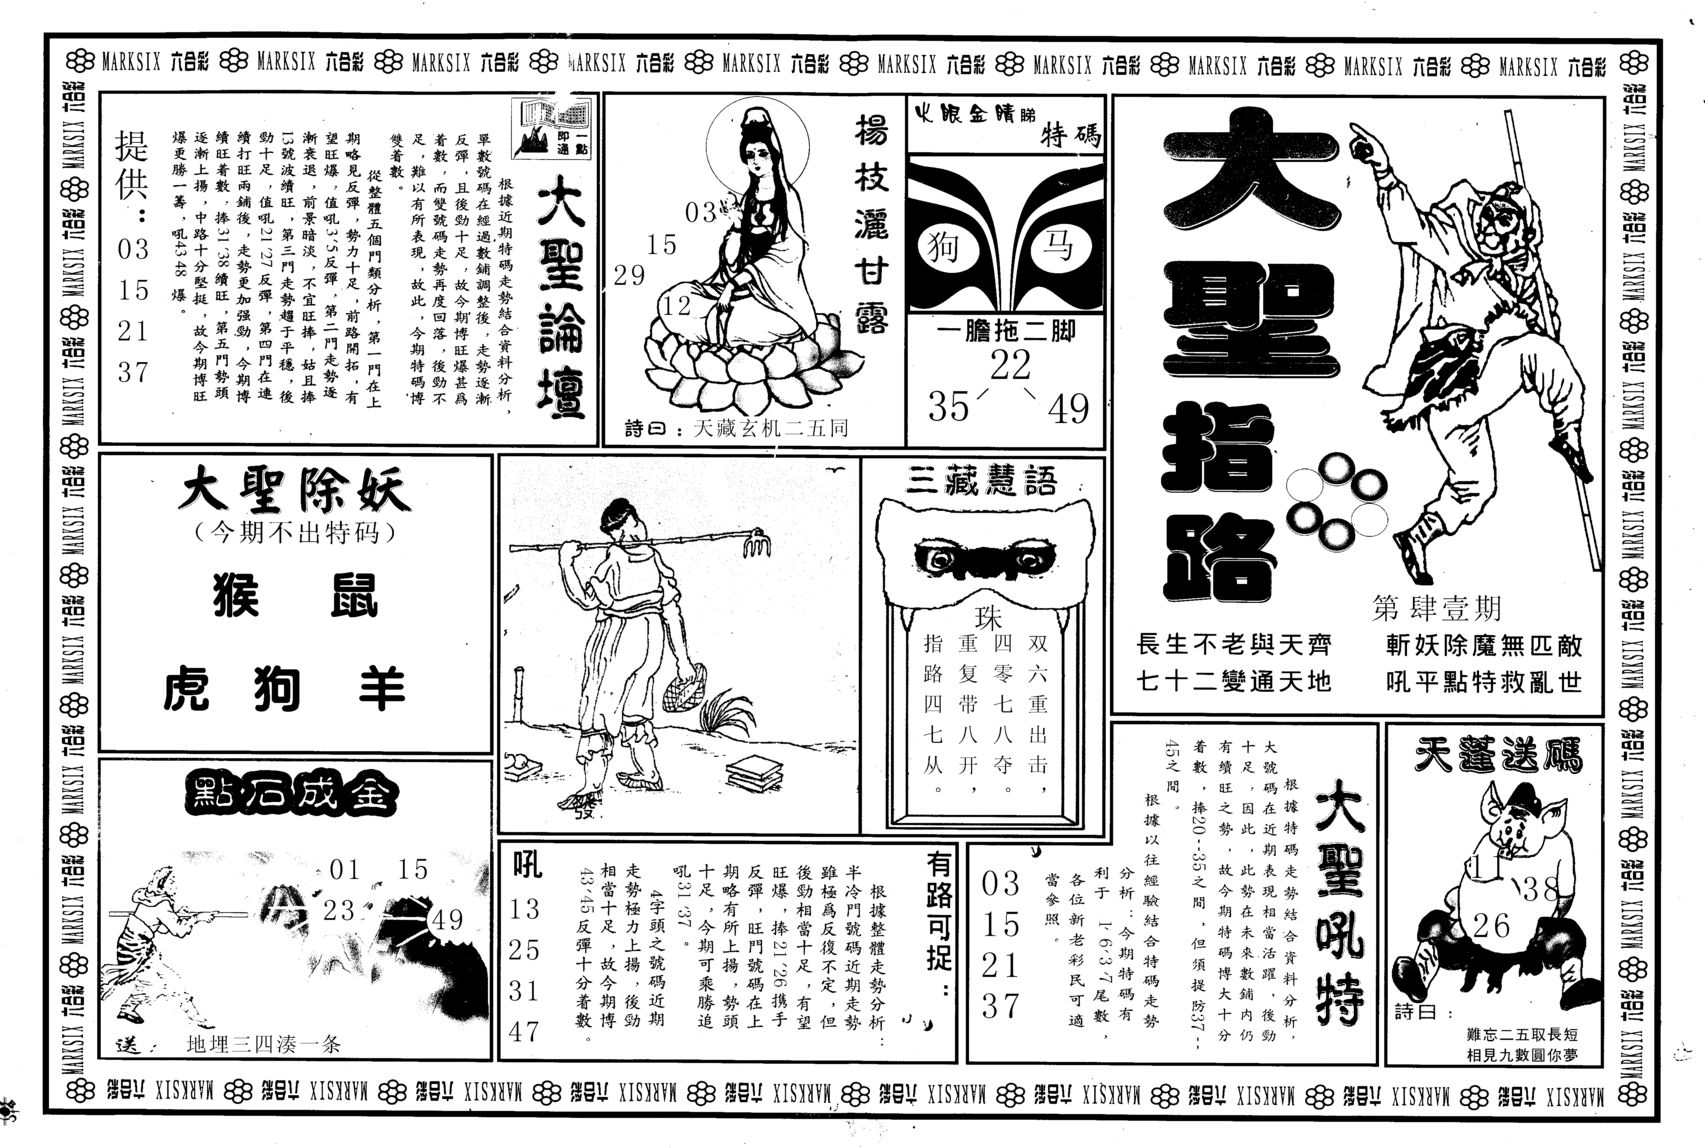 MARKSIX 六合彩 MARKSIX 六合彩 MARKSIX 六合彩 MARKSIX 六合彩 MARKSIX 六合彩 MARKSIX 六合彩 MARKSIX 六合彩 MARKSIX 六合彩 MARKSIX 六合彩 MARKSIX 六合彩
大聖指路
第肆壹期
長生不老與天齊
七十二變通天地
斬妖除魔無匹敵
吼平點特救亂世
火眼金睛睇
特碼
狗 马
一膽拖二脚
22
35 49
楊枝灑甘露
03
15
29
12
詩曰：天藏玄机二五同
一點
即通
大聖論壇
根據近期特碼走勢結合資料分析，
單數號碼在經過數鋪調整後，走勢逐漸
反彈，且後勁十足，故今期博旺爆甚爲
着數，而雙號碼走勢再度回落，後勁不
足，難以有所表現，故此，今期特碼博
雙着數。
從整體五個門類分析，第一門在上
期略見反彈，勢力十足，前路開拓，有
望旺爆，值吼3‘5反彈，第二門走勢逐
漸衰退，前景暗淡，不宜旺捧，姑且捧
13號波續旺，第三門走勢趨于平穩，後
勁十足，值吼21‘27反彈，第四門在連
續打旺兩鋪後，走勢更加强勁，今期博
續旺着數，捧31‘38續旺，第五門勢頭
逐漸上揚，中路十分堅挺，故今期博旺
爆更勝一籌，吼43 48 爆。
提供：
03
15
21
37
大聖除妖
（今期不出特码）
猴 鼠
虎 狗 羊
三藏慧語
珠
双六重出击，
四零七八夺。
重复带八开，
指路四七从。
點石成金
01 15
23
49
送： 地埋三四湊一条
有路可捉：
根據整體走勢分析：
半冷門號碼近期走勢
雖極爲反復不定，但
後勁相當十足，有望
旺爆，捧21‘26携手
反彈，旺門號碼在上
期略有所上揚，勢頭
十足，今期可乘勝追
吼31 37 。
4字頭之號碼近期
走勢極力上揚，後勁
相當十足，故今期博
43‘45反彈十分着數。
吼
13
25
31
47
大聖吼特
根據特碼走勢結合資料分析，
大號碼在近期表現相當活躍，後勁
十足，因此，此勢在未來數鋪內仍
有續旺之勢，故今期特碼博大十分
着數，捧20--35之間，但須提防37--
45之間。
根據以往經驗結合特碼走勢
分析：今期特碼有
利于 1‘6‘3‘7尾數，
各位新老彩民可適
當參照。
03
15
21
37
天蓬送碼
11
38
26
詩曰：
難忘二五取長短
相見九數圓你夢